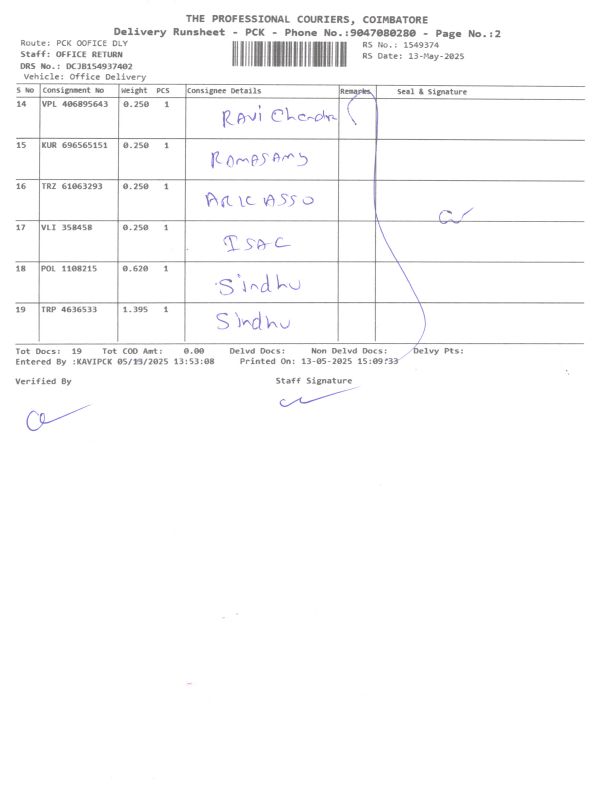 THE PROFESSIONAL COURIERS, COIMBATORE
Delivery Runsheet - PCK - Phone No.:9047080280 - Page No.:2
Route: PCK OOFICE DLY RS No.: 1549374
Staff: OFFICE RETURN RS Date: 13-May-2025
DRS No.: DCJB154937402
Vehicle: Office Delivery
S No Consignment No Weight PCS Consignee Details Remarks Seal & Signature
14 VPL 406895643 0.250 1 RAVi Chandra
15 KUR 696565151 0.250 1 RAMASAMY
16 TRZ 61063293 0.250 1 ARK ASSO
17 VLI 358458 0.250 1 ISAC
18 POL 1108215 0.620 1 Sindhu
19 TRP 4636533 1.395 1 Sindhu
Tot Docs: 19 Tot COD Amt: 0.00 Delvd Docs: Non Delvd Docs: Delvy Pts:
Entered By :KAVIPCK 05/13/2025 13:53:08 Printed On: 13-05-2025 15:09:33
Verified By Staff Signature